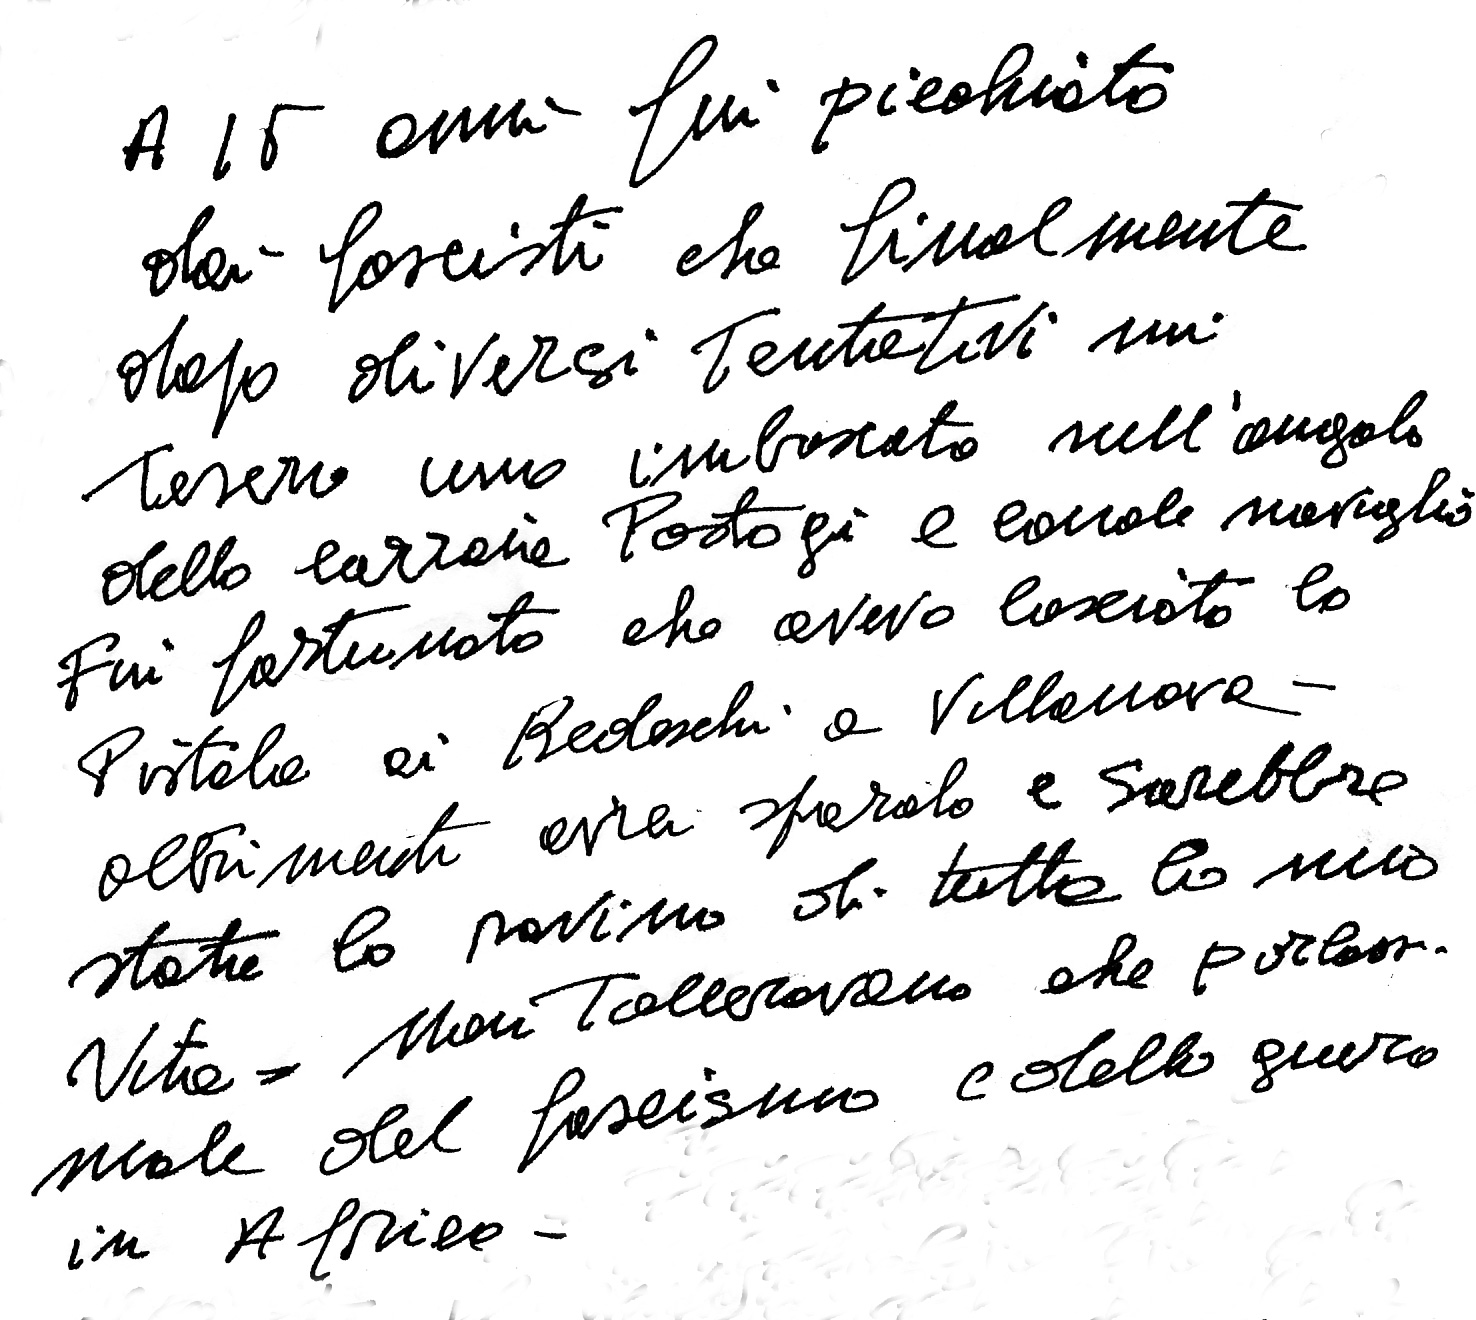 A 15 anni fui picchiato
dai fascisti che finalmente
dopo diversi Tentativi mi
Tesero una imboscata nell'angolo
della carraia Postogi e canale naviglio
Fui fortunato che avevo lasciato la
Pistola ai Redeschi a Villanova -
altrimenti avrei sparato e sarebbre
stata la rovina di tutta la mia
Vita = Non Tolleravano che parlassi
male del fascismo e della guerra
in Africa -